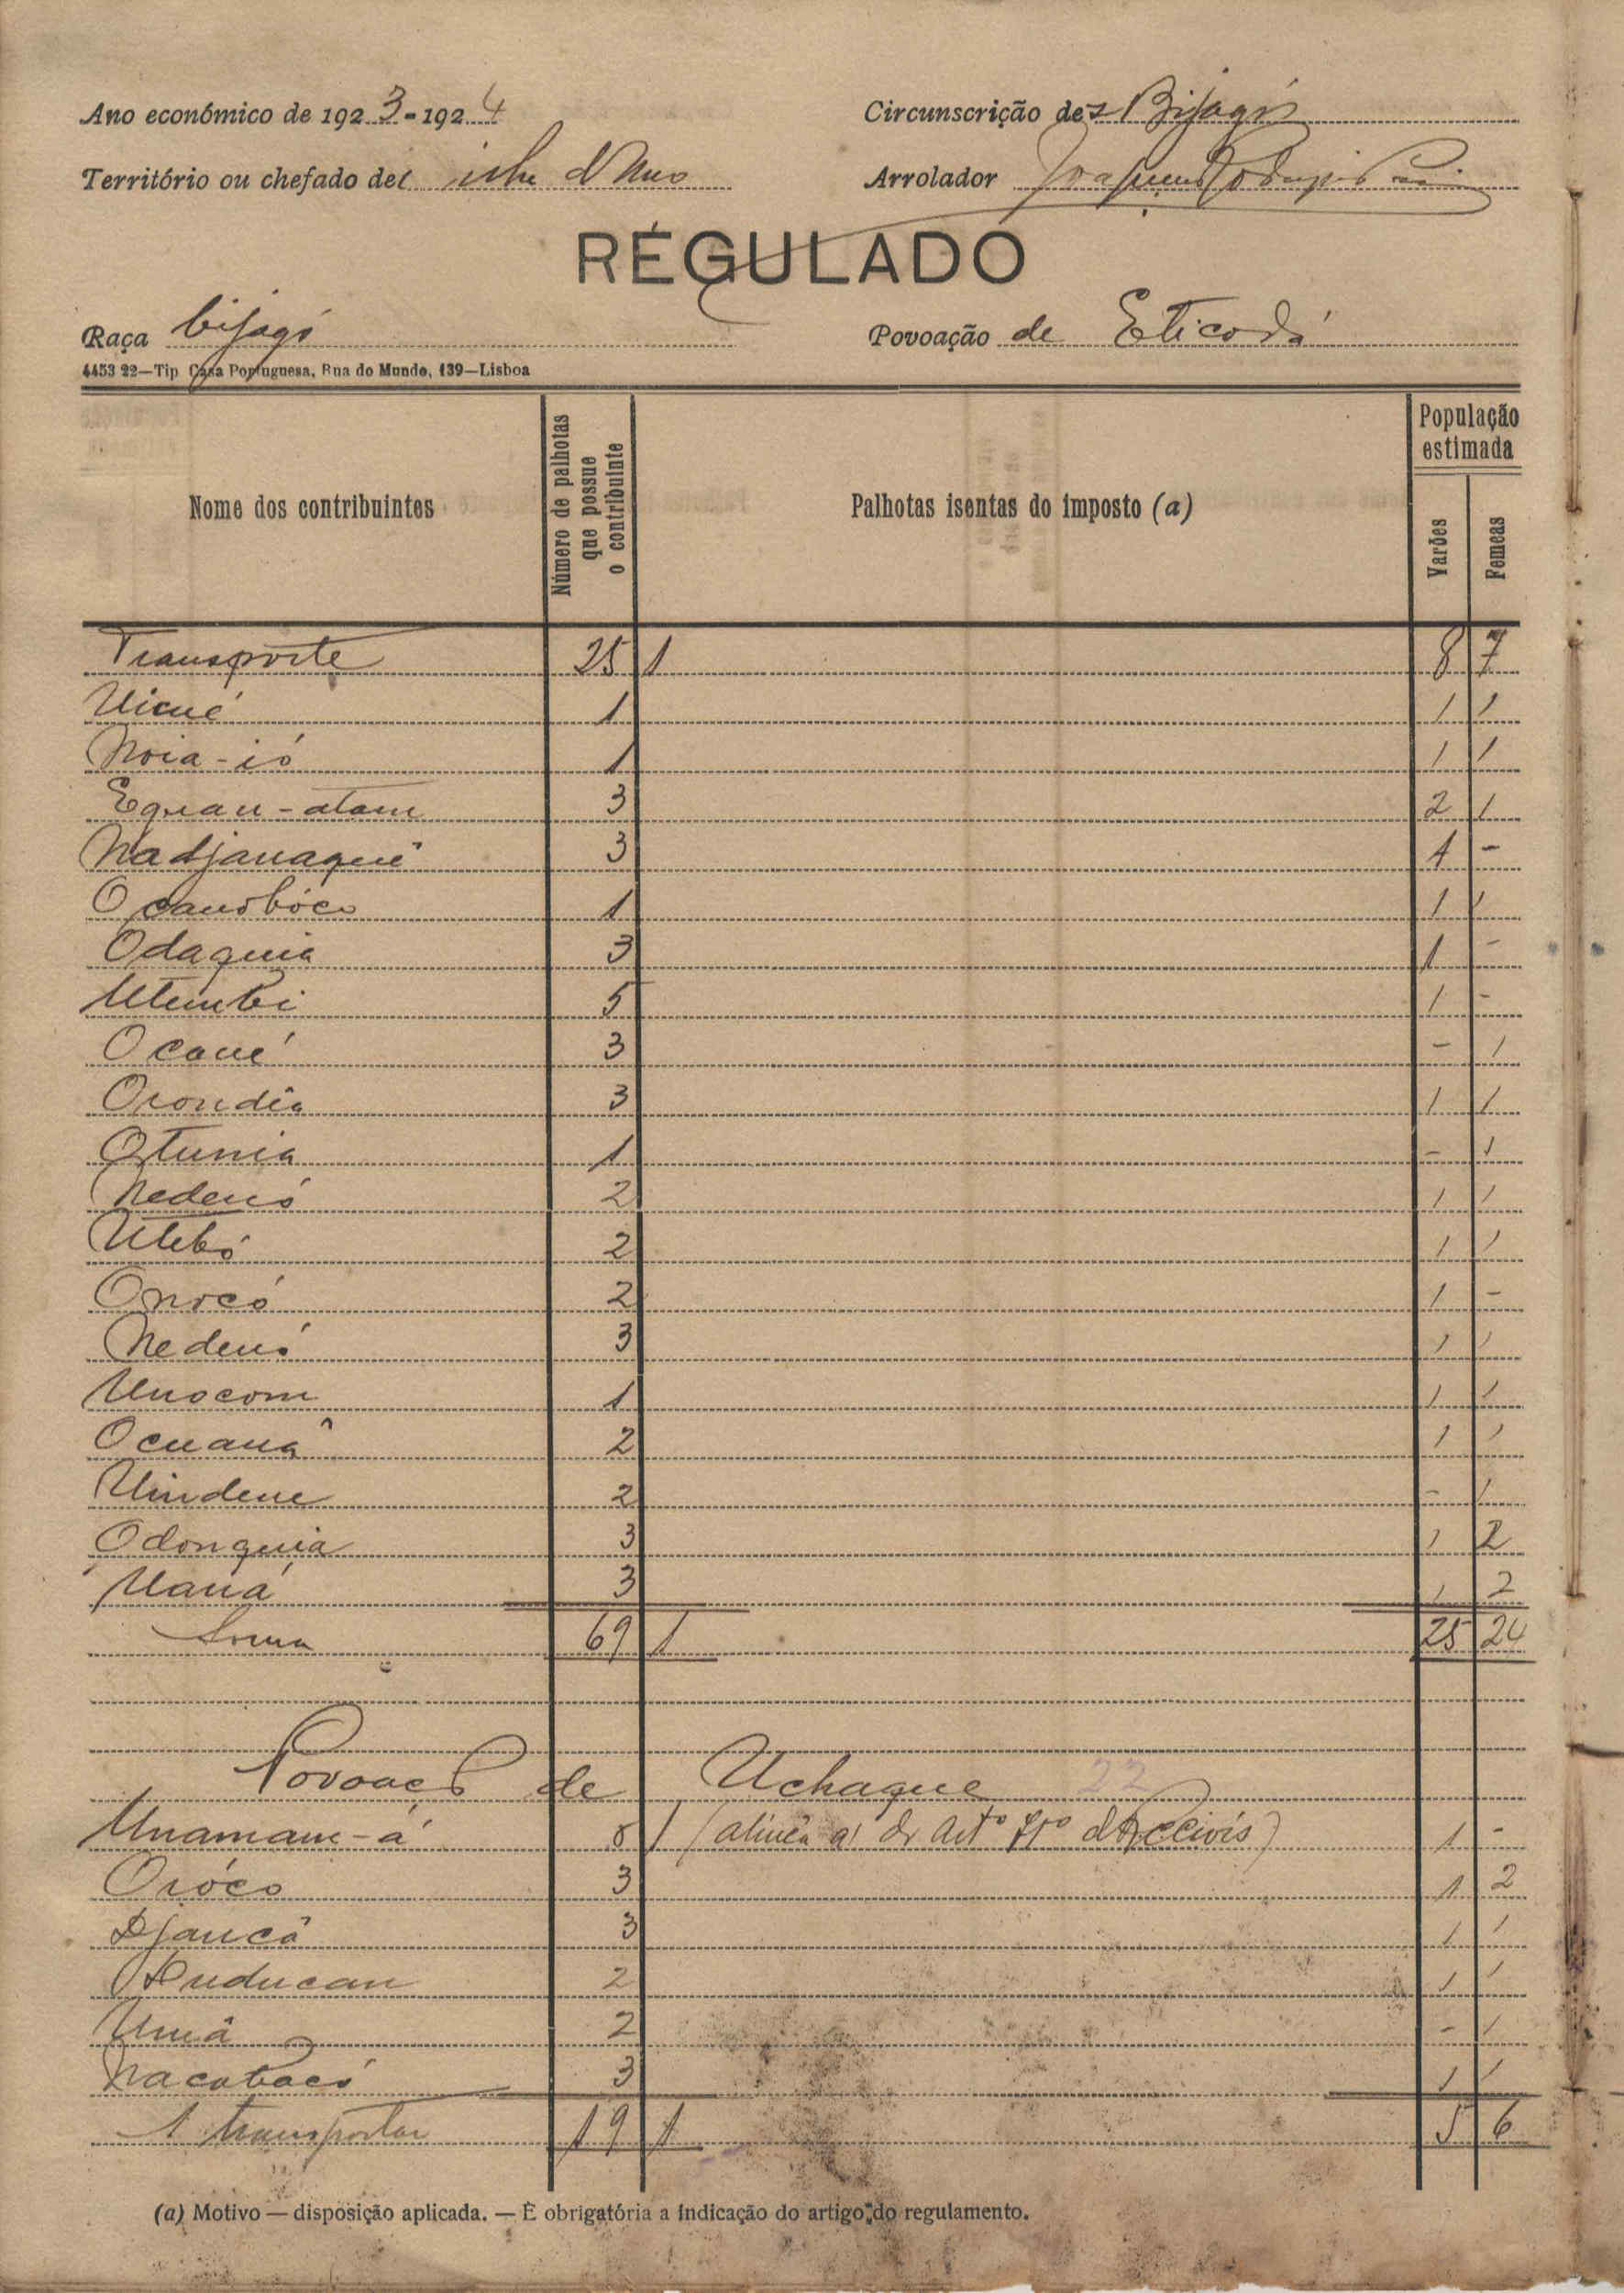 Ano económico de 1923-1924 Circunscrição de Bijagós
Território ou chefado de ilha d Uno Arrolador Joaquim Rodrigues
REGULADO
Raça bijagó Povoação de Eticodá
4453 22—Tip Casa Portuguesa, Rua do Mundo, 139—Lisboa
Nome dos contribuintes Número de palhotas que possue o contribuinte Palhotas isentas do imposto (a) População estimada Varões Femeas
Transporte 25 1 8 7
Uicué 1 1 1
Noia-ió 1 1 1
Eguau-atam 3 2 1
Nadjanaqué 3 1 -
Ocanobóco 1 1 1
Odaquia 3 1 -
Utumbi 5 1 -
Ocané 3 - 1
Orondia 3 1 1
Otunia 1 - 1
Nedenó 2 1 1
Utebó 2 1 1
Onocó 2 1 -
Nedenó 3 1 1
Unocom 1 1 1
Ocuanâ 2 1 1
Uindene 2 - 1
Odonquia 3 1 2
Uaná 3 1 2
Soma 69 1 25 24
Povoação de Uchaque 22
Unamam-á 6 1 (alinea a) do Artº 7º 1 -
Oróco 3 1 2
Djancâ 3 1 1
Duducan 2 1 1
Umâ 2 - 1
Nacobacó 3 1 1
A transportar 19 1 5 6
(a) Motivo — disposição aplicada. — É obrigatória a indicação do artigo do regulamento.